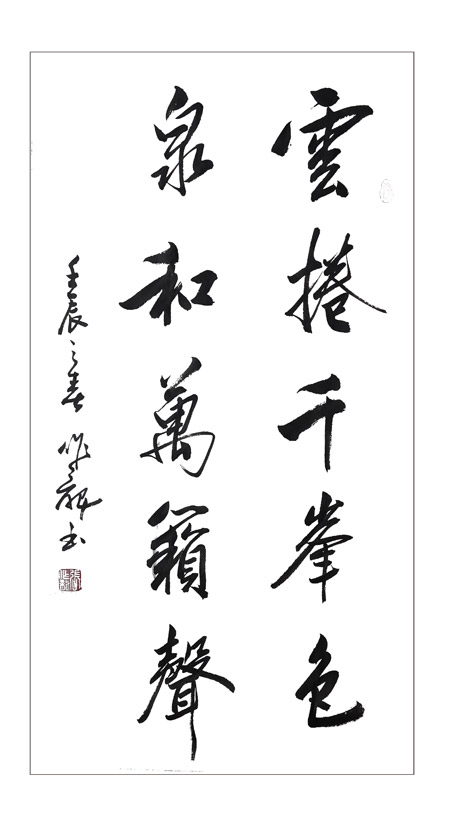 雲捲千峯色
泉和萬籟聲
壬辰之春